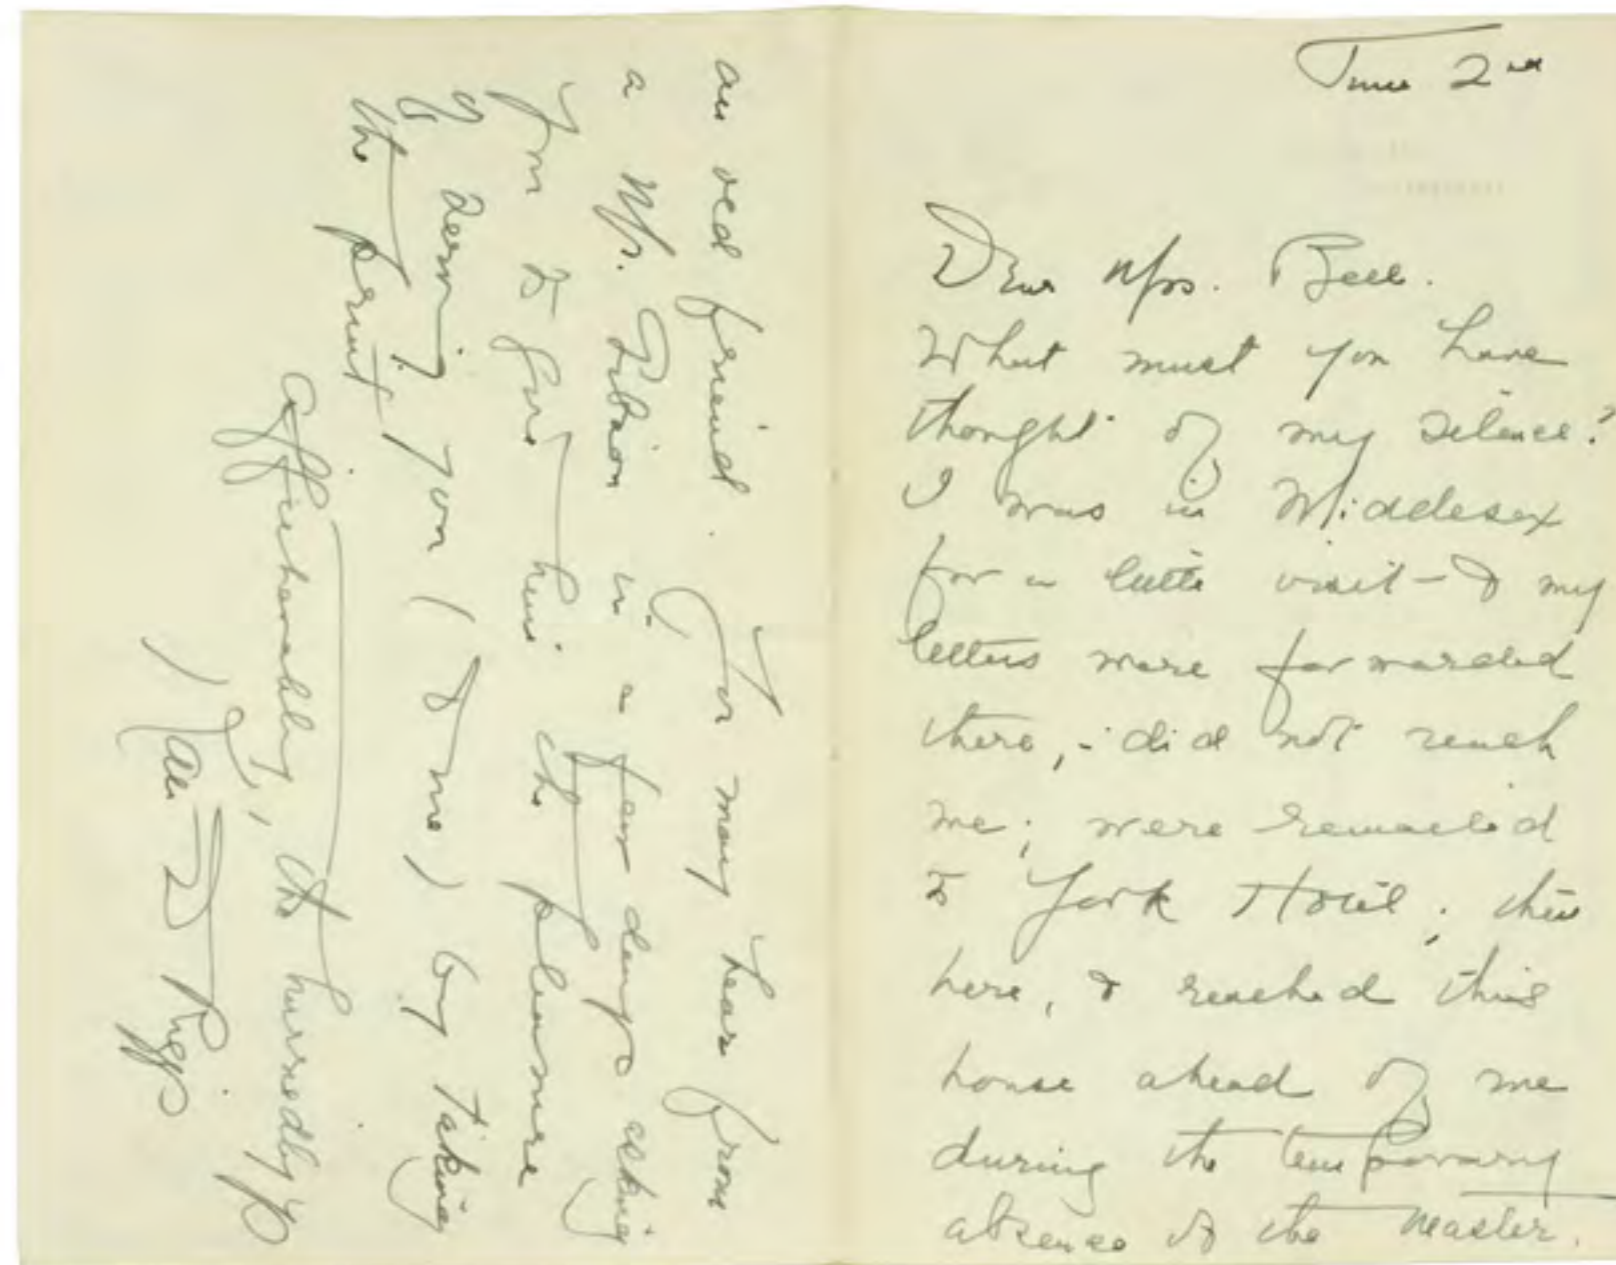 June 2nd
Dear Mrs. Bell.
What must you have
thought of my silence?
I was in Middlesex
for a little visit – & my
letters were forwarded
there, – did not reach
me; were remailed
to York Hotel; then
here, & reached this
house ahead of me
during the temporary
absence of the Master.
an old friend. You may hear from
a Mr. Gibson in a few days asking
you to give him the pleasure
of serving you (& me) by taking
the print
affectionately, tho hurriedly
K D Riggs